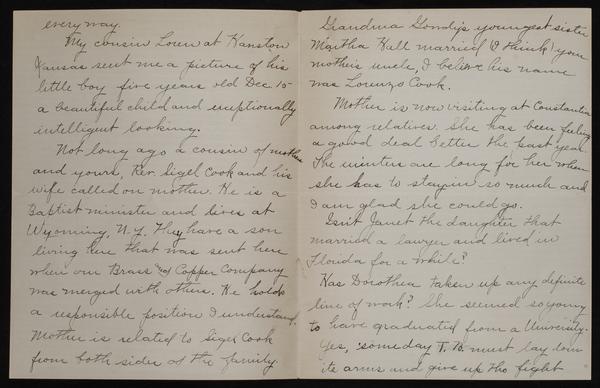 every way.
My cousin Loren at Kanston
Kansas sent me a picture of his
little boy five years old Dec. 15
a beautiful child and exceptionally
intelligent looking.
Not long ago a cousin of mother
and yours, Rev. Sigel Cook and his
wife called on mother. He is a
Baptist minister and lives at
Wyoming, N.Y. They have a son
living here that was sent here
when our Brass and Copper Company
was merged with others. He holds
a responsible position I understand.
Mother is related to Sigel Cook
from both sides of the family.
Grandma Gondy's youngest sister
Martha Hull married (I think) your
mother's uncle, I believe his name
was Lorenzo Cook.
Mother is now visiting at Constantia
among relatives. She has been feeling
a good deal better the past year.
The winters are long for her when
she has to stay in so much and
I am glad she could go.
Isn't Janet the daughter that
married a lawyer and lived in
Florida for a while?
Has Dorothea taken up any definite
line of work? She seemed so young
to have graduated from a University.
Yes, someday T. B. must lay down
its arms and give up the fight